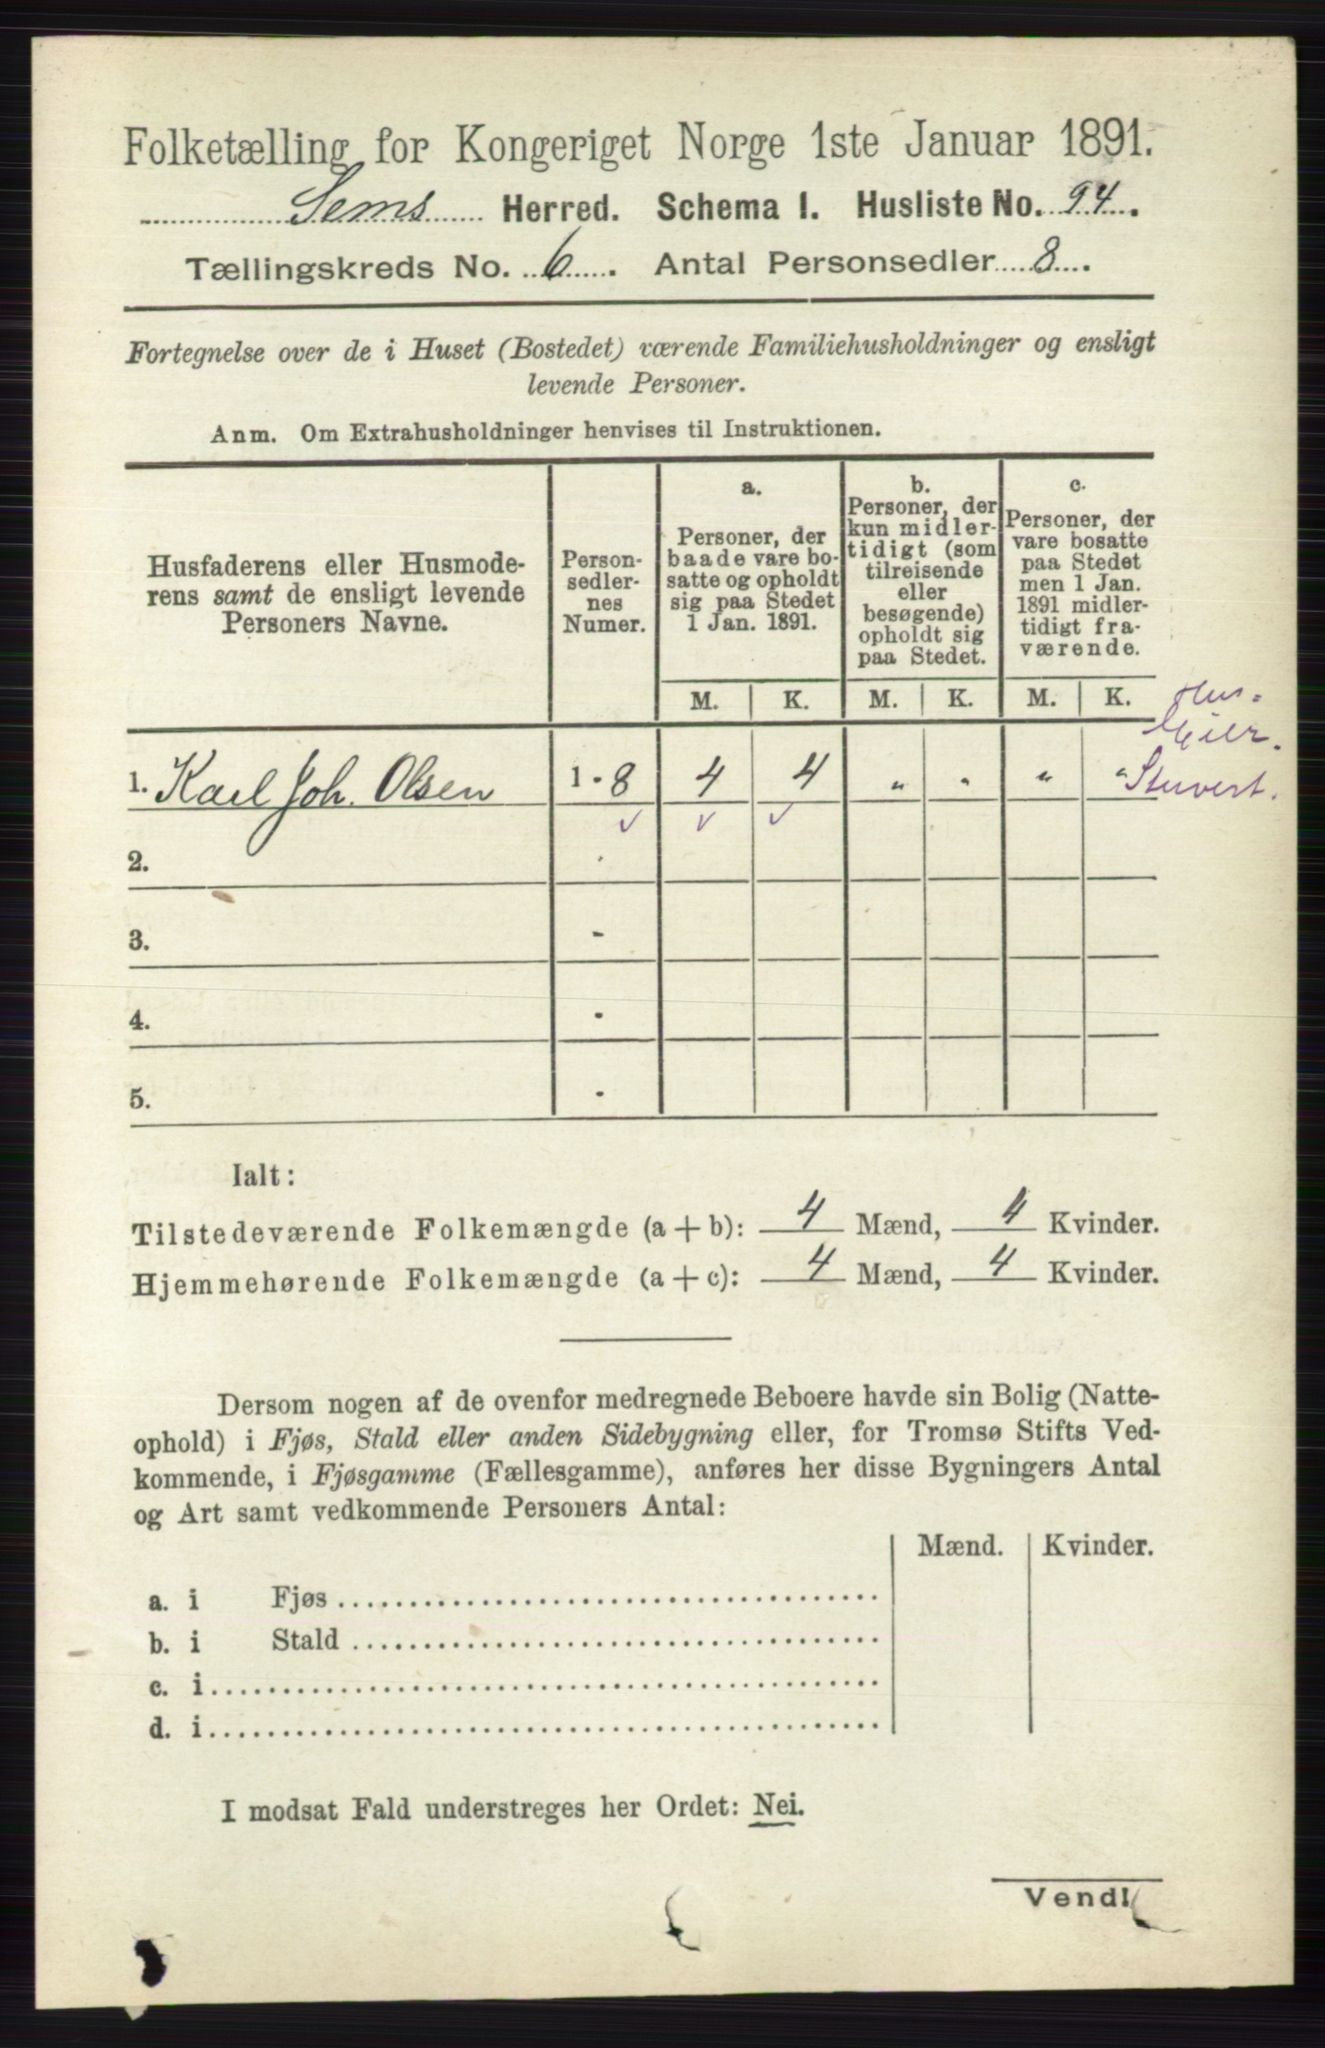 Folketælling for Kongeriget Norge 1ste Januar 1891.
Sems Herred. Schema I. Husliste No. 94.
Tællingskreds No. 6. Antal Personsedler 8.
Fortegnelse over de i Huset (Bostedet) værende Familiehusholdninger og ensligt
levende Personer.
Anm. Om Extrahusholdninger henvises til Instruktionen.
Husfaderens eller Husmode-
rens samt de ensligt levende
Personers Navne.
Person-
sedler-
nes
Numer.
a.
Personer, der
baade vare bo-
satte og opholdt
sig paa Stedet
1 Jan. 1891.
b.
Personer, der
kun midler-
tidigt (som
tilreisende
eller
besøgende)
opholdt sig
paa Stedet.
c.
Personer, der
vare bosatte
paa Stedet
men 1 Jan.
1891 midler-
tidigt fra-
værende.
M. K. M. K. M. K.
Hus-
Eier.
1. Karl Joh. Olsen 1 - 8 4 4 " " " " Stuvert.
2.
3. -
4. -
5. -
Ialt:
Tilstedeværende Folkemængde (a + b): 4 Mænd, 4 Kvinder.
Hjemmehørende Folkemængde (a + c): 4 Mænd, 4 Kvinder.
Dersom nogen af de ovenfor medregnede Beboere havde sin Bolig (Natte-
ophold) i Fjøs, Stald eller anden Sidebygning eller, for Tromsø Stifts Ved-
kommende, i Fjøsgamme (Fællesgamme), anføres her disse Bygningers Antal
og Art samt vedkommende Personers Antal:
Mænd. Kvinder.
a. i Fjøs
b. i Stald
c. i
d. i
I modsat Fald understreges her Ordet: Nei.
Vend!